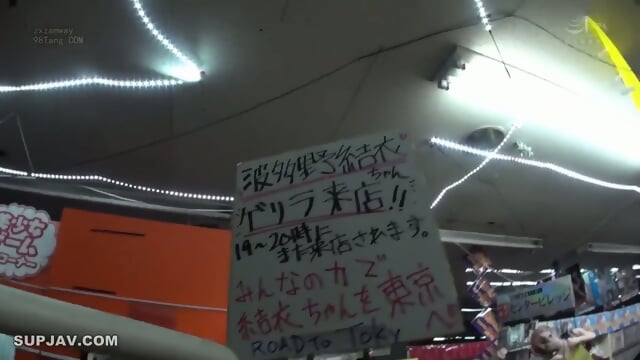 zxzamway
98Tang.COM
波多野結衣
ちゃん
ゲリラ来店!!
19〜20時に
また来店されます。
みんなの力で
結衣ちゃんを東京
へ♡
ROAD TO TOKY
コーナー
SUPJAV.COM